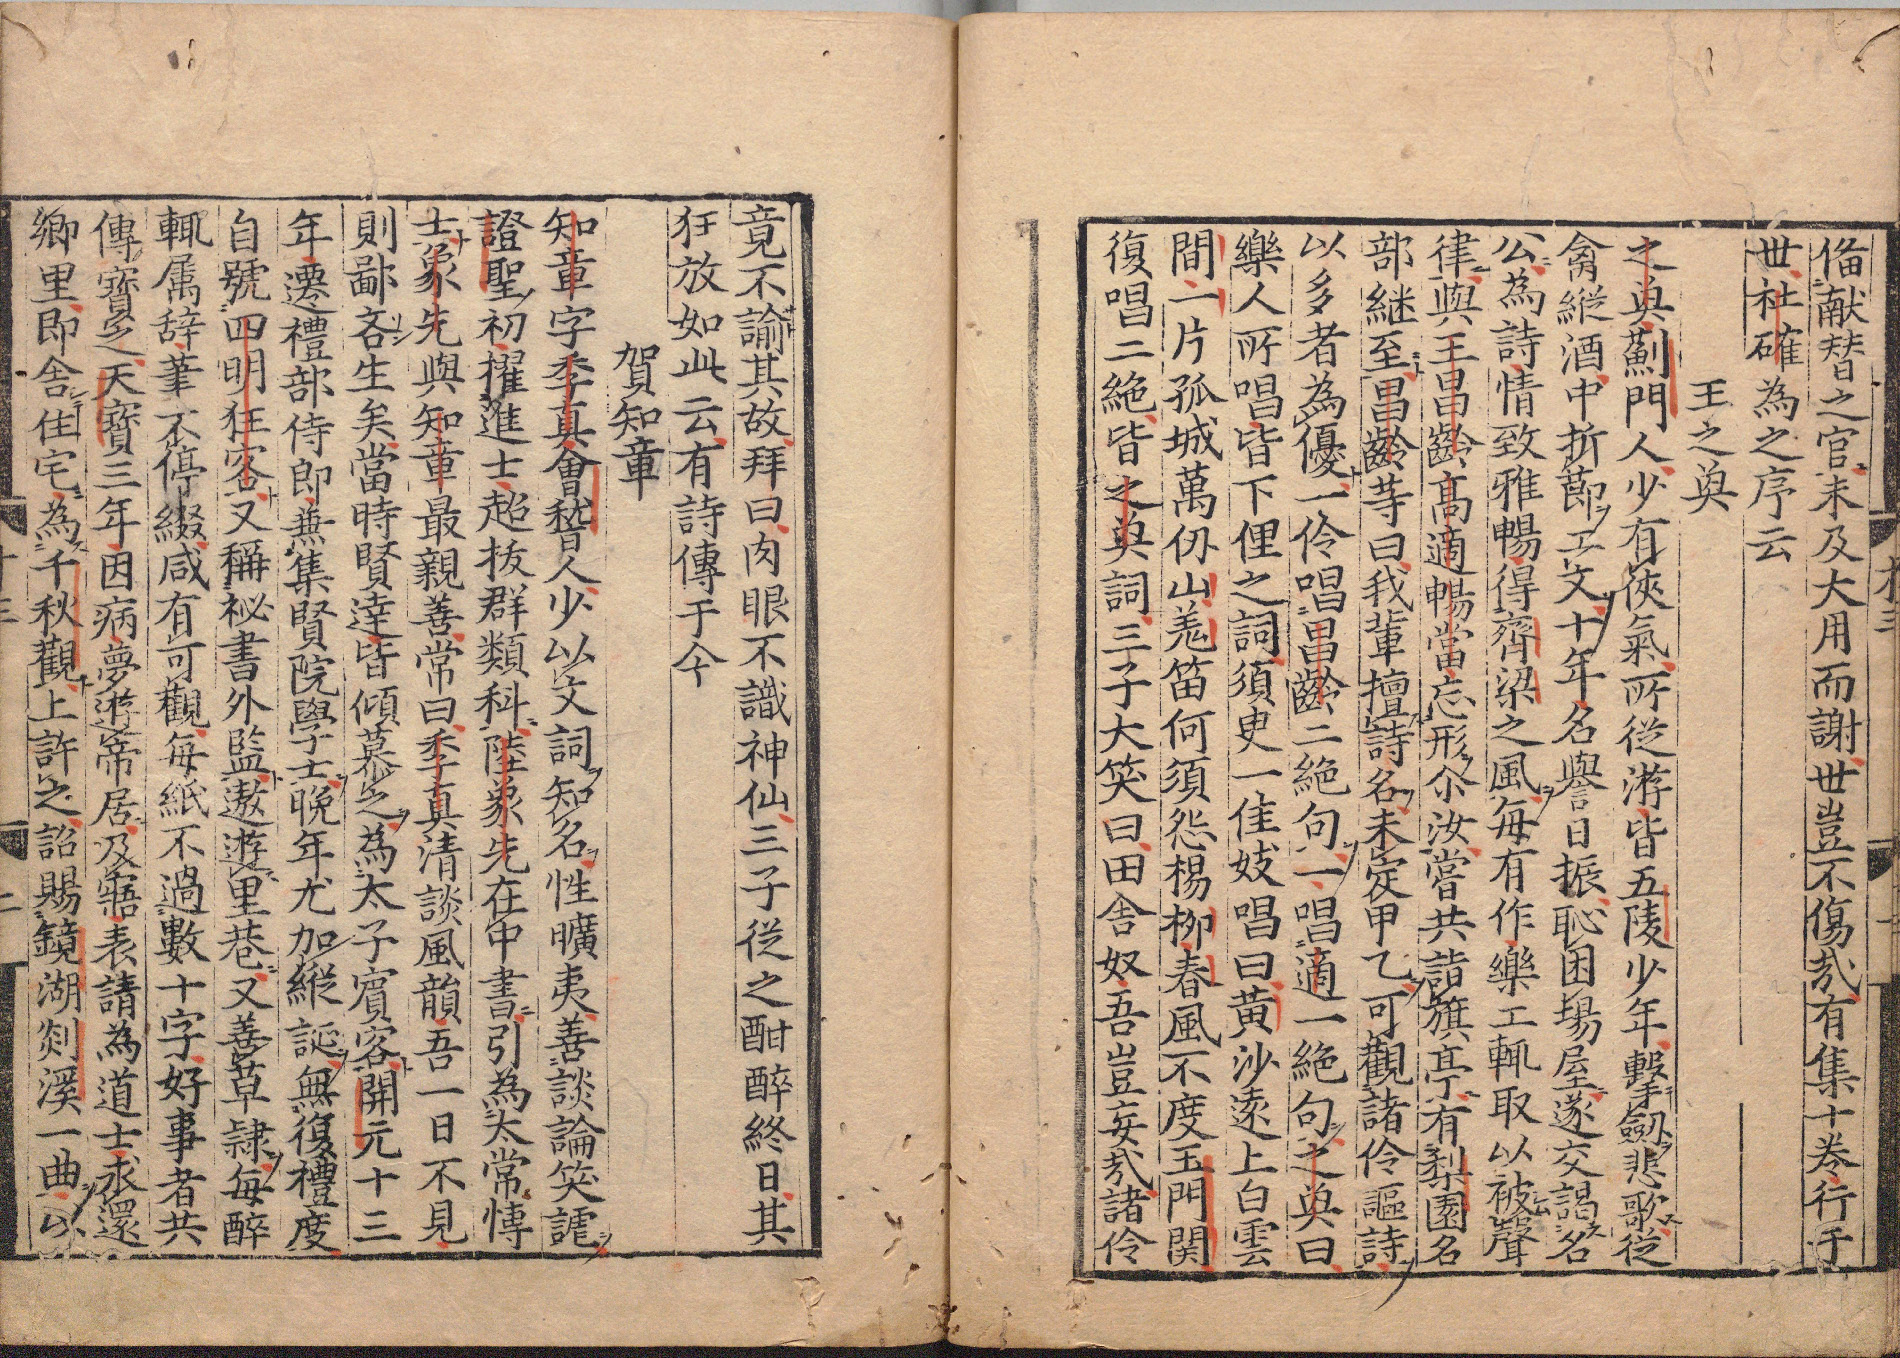 偹献替之官未及大用而謝世豈不傷㢤有集十巻行于
世杜確為之序云
王之奐
之奐薊門人少有俠氣所從游皆五陵少年擊劔悲歌從
禽縱酒中折節工文十年名譽日振恥困場屋遂交謁名
公為詩情致雅暢得齊梁之風每有作樂工輒取以被聲
律與王昌齡髙適暢當忘形尒汝嘗共詣旗亭有梨園名
部継至昌齡等曰我輩擅詩名未定甲乙可觀諸伶謳詩
以多者為優一伶唱昌齡二絶句一唱適一絶句之奐曰
樂人所唱皆下俚之詞須臾一佳妓唱曰黄沙遠上白雲
間一片孤城萬仭山羗笛何須怨楊柳春風不度玉門関
復唱二絶皆之奐詞三子大笑曰田舎奴吾豈妄㢤諸伶
竟不諭其故拜曰肉眼不識神仙三子從之酣醉終日其
狂放如此云有詩傳于今
賀知章
知章字季真會稽人少以文詞知名性曠夷善談論笑謔
證聖初擢進士超抜群類科陸象先在中書引為太常愽
士象先與知章最親善常曰季真清談風韻吾一日不見
則鄙吝生矣當時賢達皆傾慕之為太子賓客開元十三
年遷禮部侍郎兼集賢院學士晩年尤加縱誕無復禮度
自號四明狂客又稱祕書外監遨遊里巷又善草隷每醉
輒属辞筆不停綴咸有可觀每紙不過數十字好事者共
傳寳之天寳三年因病夢游帝居及寤表請為道士求還
郷里即舎住宅為千秋觀上許之詔賜鏡湖剡溪一曲以